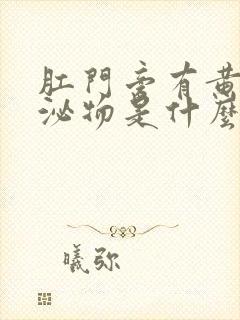 肛門旁有黄
泌物是什麼
曦弥